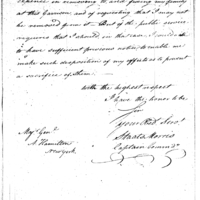 expence in removing to and fixing my family
at this Garrison and of requesting that I may not
be removed from it. But if the public service
requires that I should in this case I would wish
to have sufficient previous notice to enable me to
make such disposition of my effects as to prevent
a sacrifice of them.
With the highest respect
I have the honor to be
Sir
Your Obed Servt
Staats Morris
Captain Command
Maj Genl
A Hamilton
New york